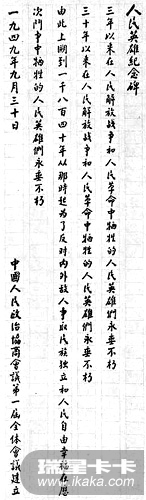 人民英雄紀念碑
三年以來在人民解放戰爭和人民革命中牺牲的人民英雄們永垂不朽
三十年以來在人民解放戰爭和人民革命中牺牲的人民英雄們永垂不朽
由此上溯到一千八百四十年从那時起為了反对内外敌人爭取民族独立和人民自由幸福在歷
次鬥爭中牺牲的人民英雄們永垂不朽
一九四九年九月三十日
中國人民政治協商會議第一屆全体會議建立
瑞星卡卡
www.ikaka.com